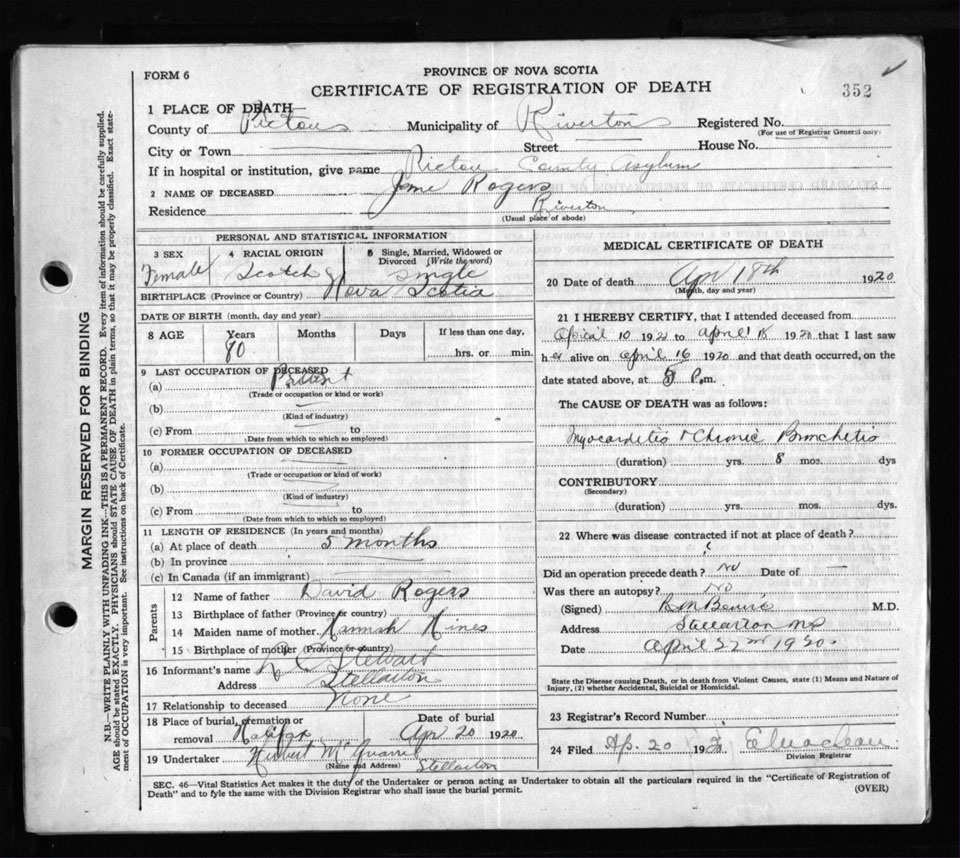 FORM 6
PROVINCE OF NOVA SCOTIA
CERTIFICATE OF REGISTRATION OF DEATH
352
1 PLACE OF DEATH
County of Pictou Municipality of Riverton Registered No.
(For use of Registrar General only)
City or Town Street House No.
If in hospital or institution, give name Pictou County Asylum
2 NAME OF DECEASED Jane Rogers
Residence Riverton
(Usual place of abode)
PERSONAL AND STATISTICAL INFORMATION
3 SEX Female
4 RACIAL ORIGIN Scotch
5 Single, Married, Widowed or Divorced (Write the word) Single
BIRTHPLACE (Province or Country) Nova Scotia
DATE OF BIRTH (month, day and year)
8 AGE Years 80 Months Days If less than one day, hrs. or min.
9 LAST OCCUPATION OF DECEASED
(a) Patient
(Trade or occupation or kind or work)
(b)
(Kind of industry)
(c) From to
(Date from which to which so employed)
10 FORMER OCCUPATION OF DECEASED
(a)
(Trade or occupation or kind of work)
(b)
(Kind of industry)
(c) From to
(Date from which to which so employed)
11 LENGTH OF RESIDENCE (In years and months)
(a) At place of death 5 months
(b) In province
(c) In Canada (if an immigrant)
Parents
12 Name of father David Rogers
13 Birthplace of father (Province or country)
14 Maiden name of mother Hannah Hines
15 Birthplace of mother (Province or country)
16 Informant's name Stewart
Address Stellarton
17 Relationship to deceased None
18 Place of burial, cremation or removal Halifax Date of burial Apr 20 1920
19 Undertaker
(Name and Address) Stellarton
MEDICAL CERTIFICATE OF DEATH
20 Date of death Apr 18th 1920
(Month, day and year)
21 I HEREBY CERTIFY, that I attended deceased from
April 10 19 to April 18 1920 that I last saw
her alive on April 16 1920 and that death occurred, on the
date stated above, at P.m.
The CAUSE OF DEATH was as follows:
Myocarditis & Chronic Bronchitis
(duration) yrs. 8 mos. dys
CONTRIBUTORY
(Secondary)
(duration) yrs. mos. dys.
22 Where was disease contracted if not at place of death?
Did an operation precede death? No Date of —
Was there an autopsy? No
(Signed) M.D.
Address Stellarton NS
Date April 22nd
State the Disease causing Death, or in death from Violent Causes, state (1) Means and Nature of
Injury, (2) whether Accidental, Suicidal or Homicidal.
23 Registrar's Record Number
24 Filed Ap. 20 19
Division Registrar
SEC. 46—Vital Statistics Act makes it the duty of the Undertaker or person acting as Undertaker to obtain all the particulars required in the "Certificate of Registration of
Death" and to fyle the same with the Division Registrar who shall issue the burial permit.
(OVER)
MARGIN RESERVED FOR BINDING
N.B.—WRITE PLAINLY WITH UNFADING INK—THIS IS A PERMANENT RECORD. Every item of information should be carefully supplied.
AGE should be stated EXACTLY. PHYSICIANS should STATE CAUSE OF DEATH in plain terms, so that it may be properly classified. Exact statement
of OCCUPATION is very important. See instructions on back of Certificate.